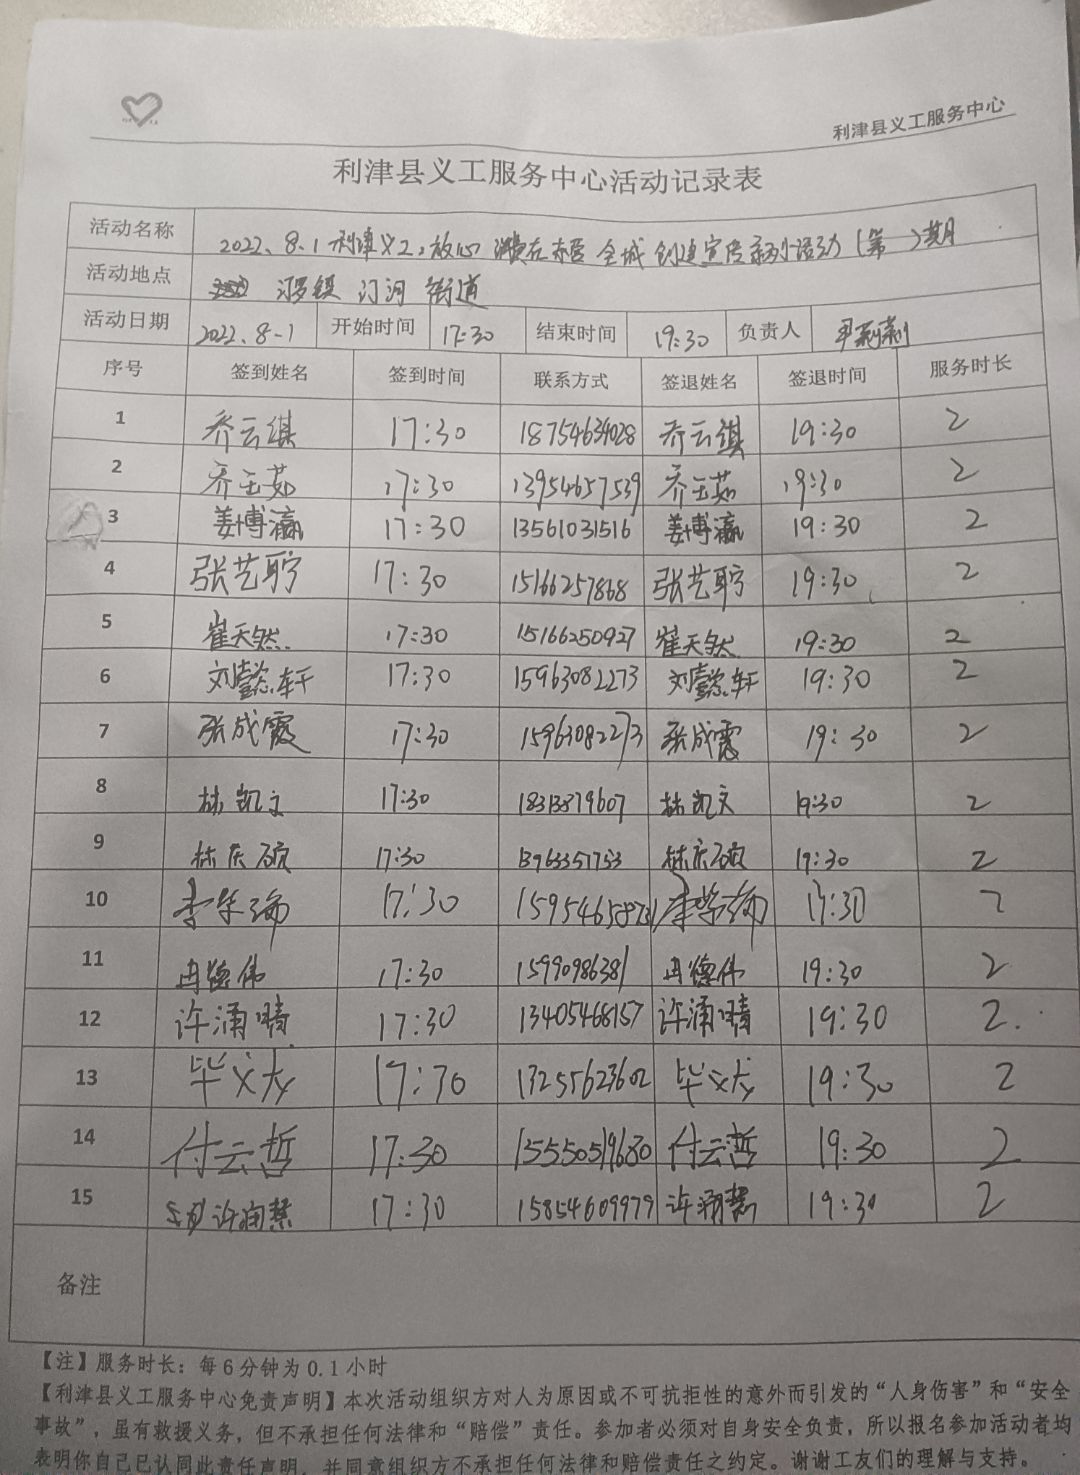 利津县义工服务中心
利津县义工服务中心活动记录表
活动名称 2022、8.1 利津义工，放心消费在东营 全城创建宣传系列活动（第一）期
活动地点 汀罗镇 汀河 街道
活动日期 2022、8-1 开始时间 17:30 结束时间 19:30 负责人
序号 签到姓名 签到时间 联系方式 签退姓名 签退时间 服务时长
1 乔云祺 17:30 18754634028 乔云祺 19:30 2
2 乔玉茹 17:30 13954657539 乔玉茹 19:30 2
3 姜博瀛 17:30 13561031516 姜博瀛 19:30 2
4 张艺聍 17:30 15166257868 张艺聍 19:30 2
5 崔天然 17:30 15166250927 崔天然 19:30 2
6 刘懿轩 17:30 15963082273 刘懿轩 19:30 2
7 张成霞 17:30 15963082273 张成霞 19:30 2
8 林凯文 17:30 18313879607 林凯文 19:30 2
9 林庆硕 17:30 13963351753 林庆硕 19:30 2
10 17:30 19:30 2
11 冉德伟 17:30 15990986381 冉德伟 19:30 2
12 许涌晴 17:30 13405468157 许涌晴 19:30 2
13 毕义龙 17:30 13255623602 毕义龙 19:30 2
14 付云哲 17:30 15550519680 付云哲 19:30 2
15 许润慧 17:30 15854609979 许润慧 19:30 2
备注
【注】服务时长：每6分钟为0.1小时
【利津县义工服务中心免责声明】本次活动组织方对人为原因或不可抗拒性的意外而引发的“人身伤害”和“安全
事故”，虽有救援义务，但不承担任何法律和“赔偿”责任。参加者必须对自身安全负责，所以报名参加活动者均
表明你自己已认同此责任声明，并同意组织方不承担任何法律和赔偿责任之约定。谢谢工友们的理解与支持。